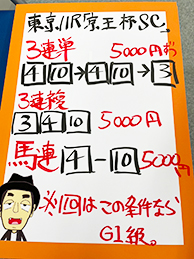 東京11R京王杯SC。
3連単 5000円ずつ
4 10→4 10→3
3連複
3 4 10 5000円
馬連 4-10 5000円
※10はこの条件なら
G1級。